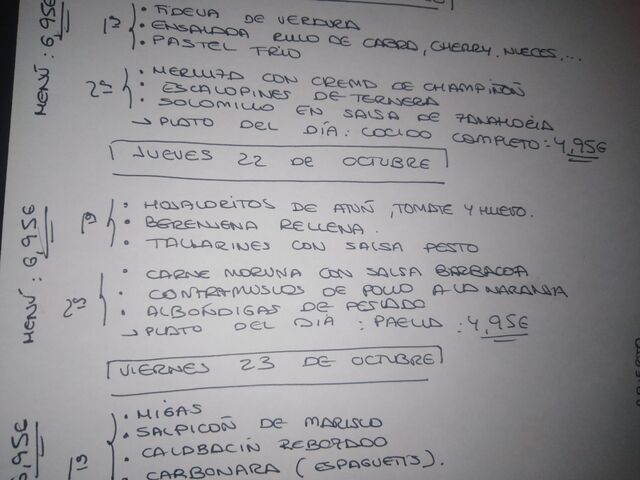 MENÚ: 6,95€
1º
· FIDEUA DE VERDURA
· ENSALADA RULO DE CABRA, CHERRY, NUECES,...
· PASTEL TRIO
2º
· MERLUZA CON CREMA DE CHAMPIÑÓN
· ESCALOPINES DE TERNERA
· SOLOMILLO EN SALSA DE ZANAHORIA
→ PLATO DEL DÍA: COCIDO COMPLETO: 4,95€
JUEVES 22 DE OCTUBRE
MENÚ: 6,95€
1º
· HOJALDRITOS DE ATÚN, TOMATE Y HUEVO.
· BERENJENA RELLENA.
· TALLARINES CON SALSA PESTO
2º
· CARNE MORUNA CON SALSA BARBACOA
· CONTRAMUSLOS DE POLLO A LA NARANJA
· ALBÓNDIGAS DE PESCADO
→ PLATO DEL DÍA: PAELLA: 4,95€
VIERNES 23 DE OCTUBRE
6,95€
1º
· MIGAS
· SALPICÓN DE MARISCO
· CALABACÍN REBOZADO
· CARBONARA (ESPAGUETIS).